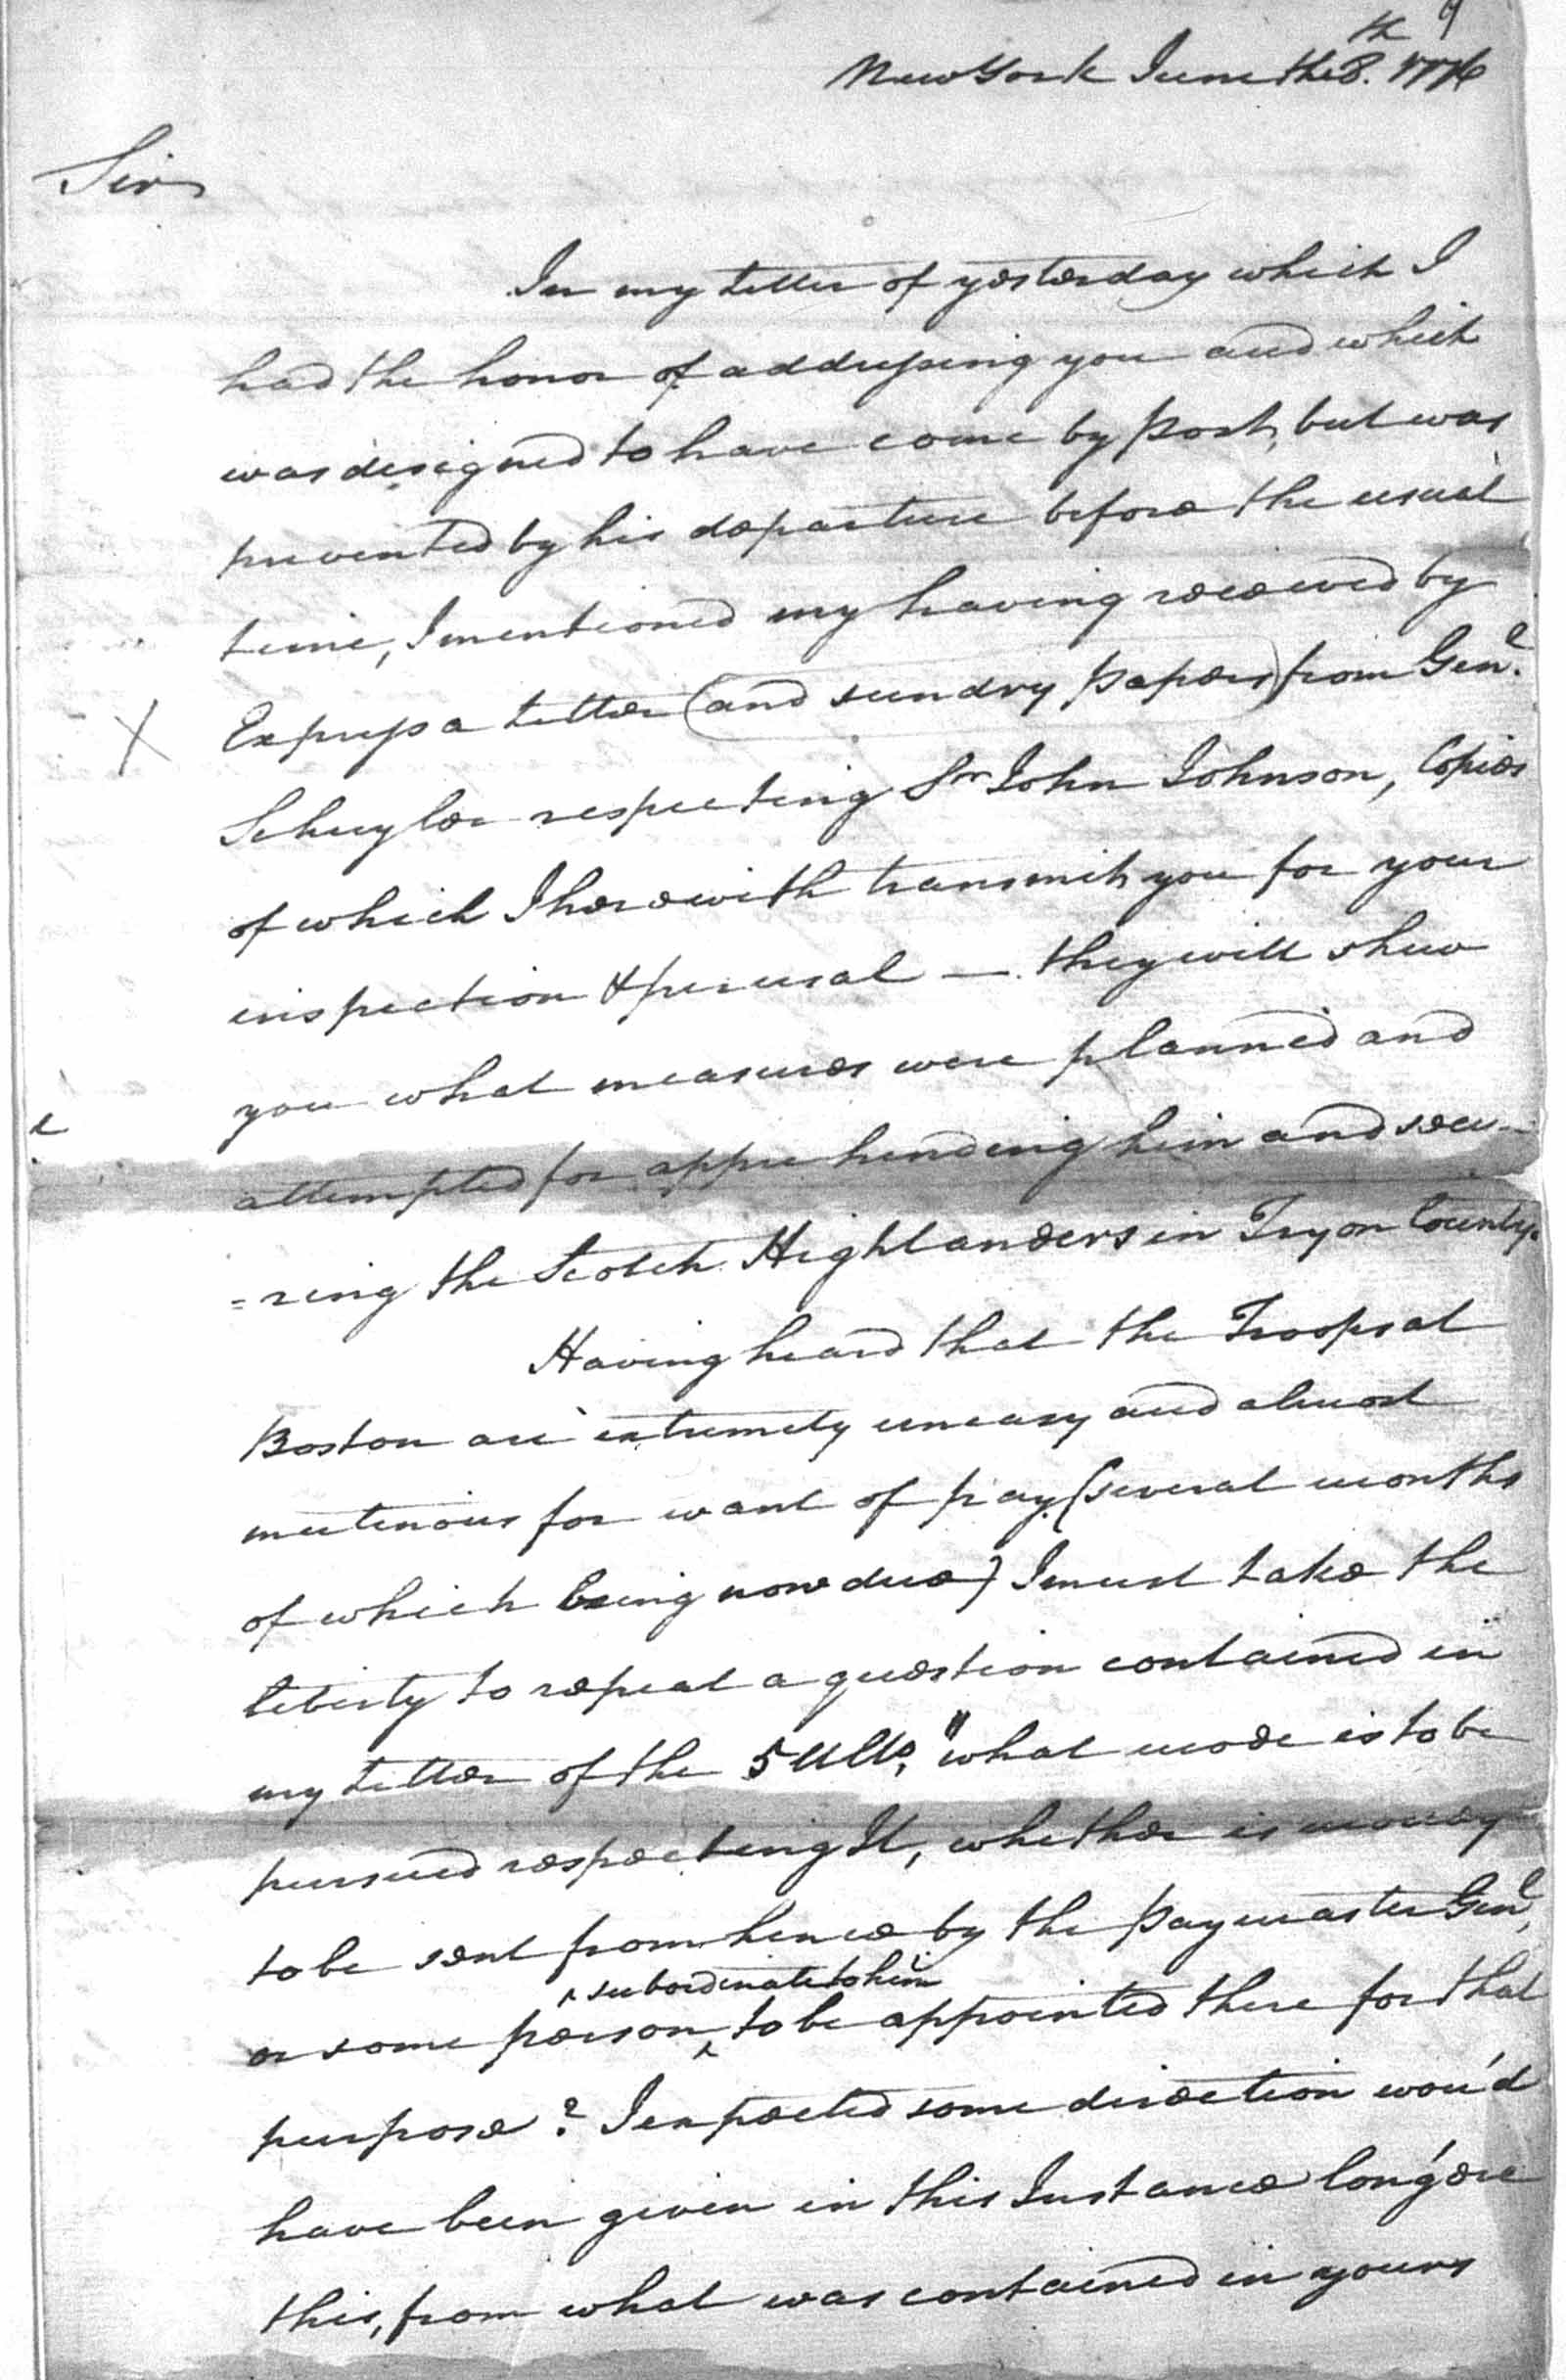 9
New York June the 8.th 1776
Sir
In my letter of yesterday which I
had the honor of addressing you and which
was designed to have come by post, but was
prevented by his departure before the usual
time, I mentioned my having received by
Express a letter (and sundry papers) from Genl.
Schuyler respecting Sr John Johnson, Copies
of which I herewith transmit you for your
inspection & perusal — they will shew
you what measures were planned and
attempted for apprehending him and secu-
=ring the Scotch Highlanders in Tryon County.
Having heard that the Troops at
Boston are extremely uneasy and almost
mutinous for want of pay (several months
of which being now due) I must take the
liberty to repeat a question contained in
my letter of the 5 Ulto, "what mode is to be
pursued respecting It, whether is money
to be sent from hence by the Paymaster Genl,
^ subordinate to him
or some person ^ to be appointed there for that
purpose? I expected some direction wou'd
have been given in this Instance long 'ere
this, from what was contained in yours